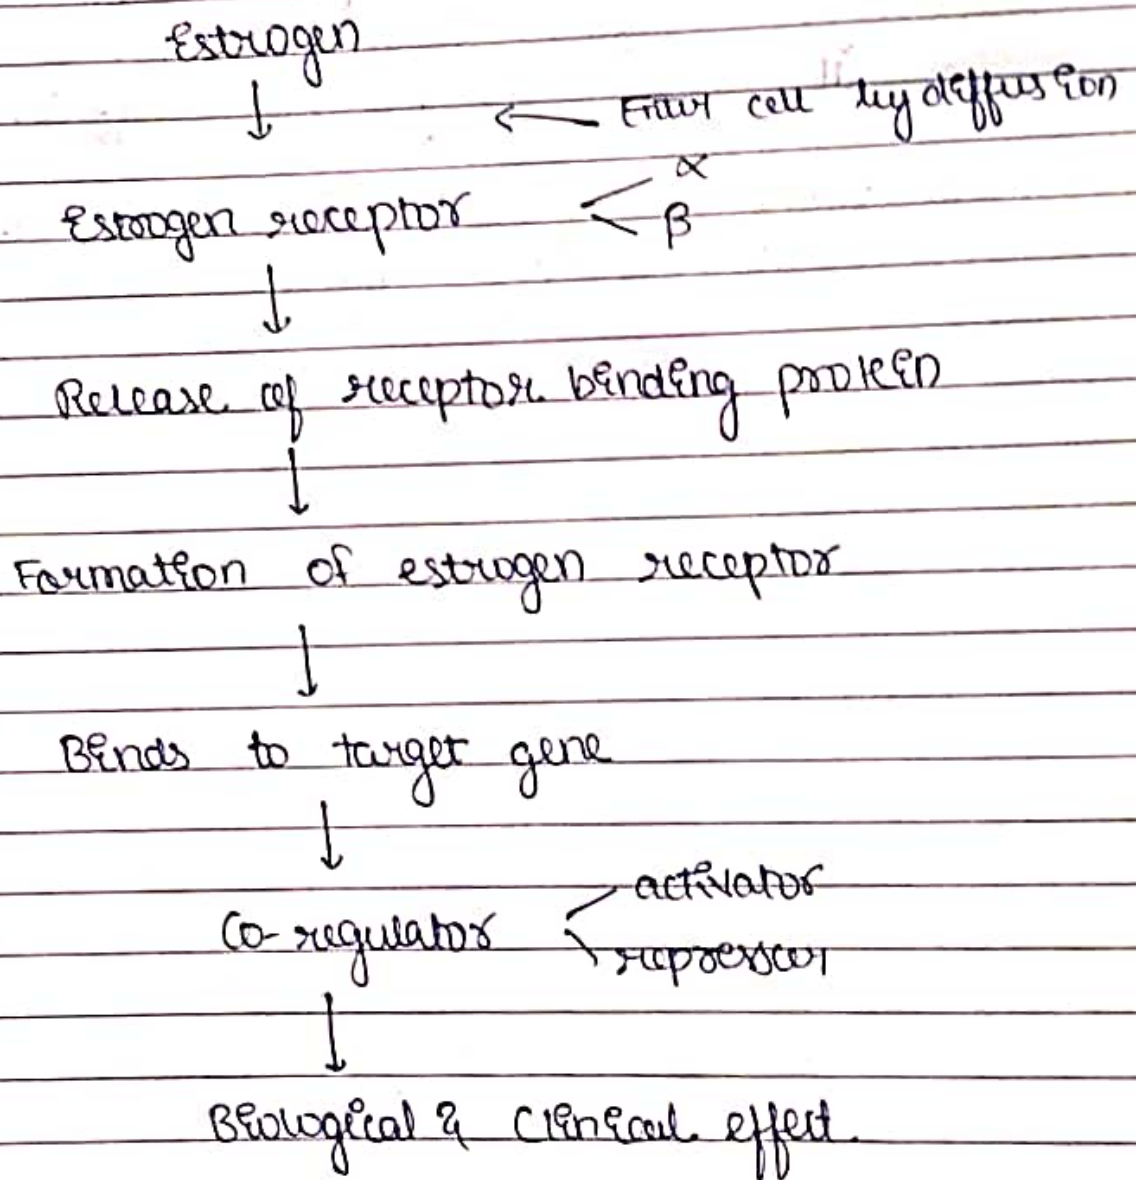 Estrogen
↓ ← Enter cell by diffusion
Estrogen receptor < α
β
↓
Release of receptor binding protein
↓
Formation of estrogen receptor
↓
Binds to target gene
↓
Co-regulator < activator
repressor
↓
Biological & Clinical effect.